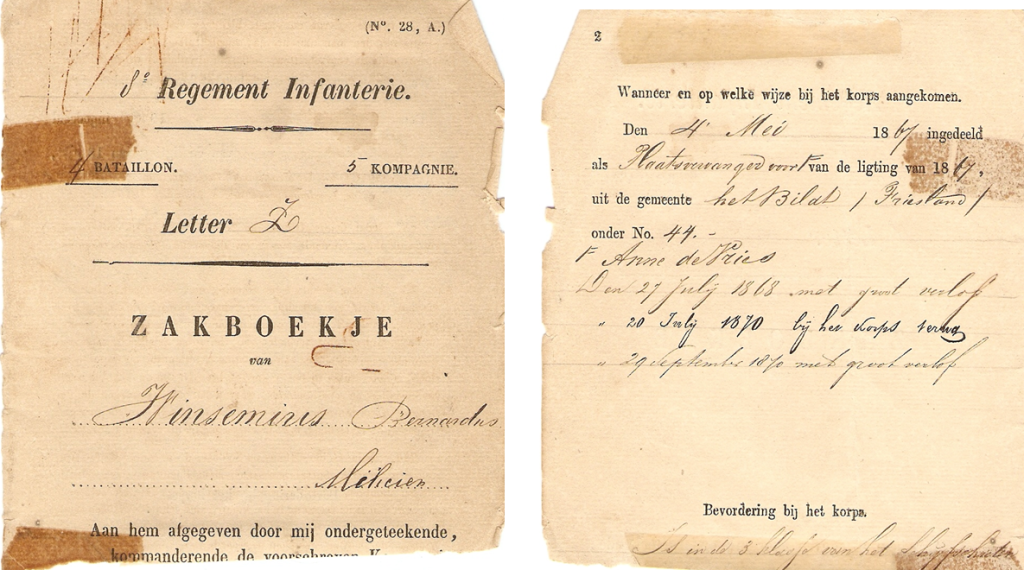 (N°. 28, A.)
8e Regement Infanterie.
4 BATAILLON. 5 KOMPAGNIE.
Letter Z
ZAKBOEKJE
van
Winsemius Bernardus
Milicien
Aan hem afgegeven door mij ondergeteekende,
kommanderende de voorschreven
2
Wanneer en op welke wijze bij het korps aangekomen.
Den 4 Mei 1867 ingedeeld
als Plaatsvervanger voor van de ligting van 1867,
uit de gemeente het Bildt / Friesland /
onder No. 44.-
Anne de Vries
Den 27 Julij 1868 met groot verlof
" 20 Julij 1870 bij het Korps terug
" 29 September 1870 met groot verlof
Bevordering bij het korps.
Is in de 3 klasse van het